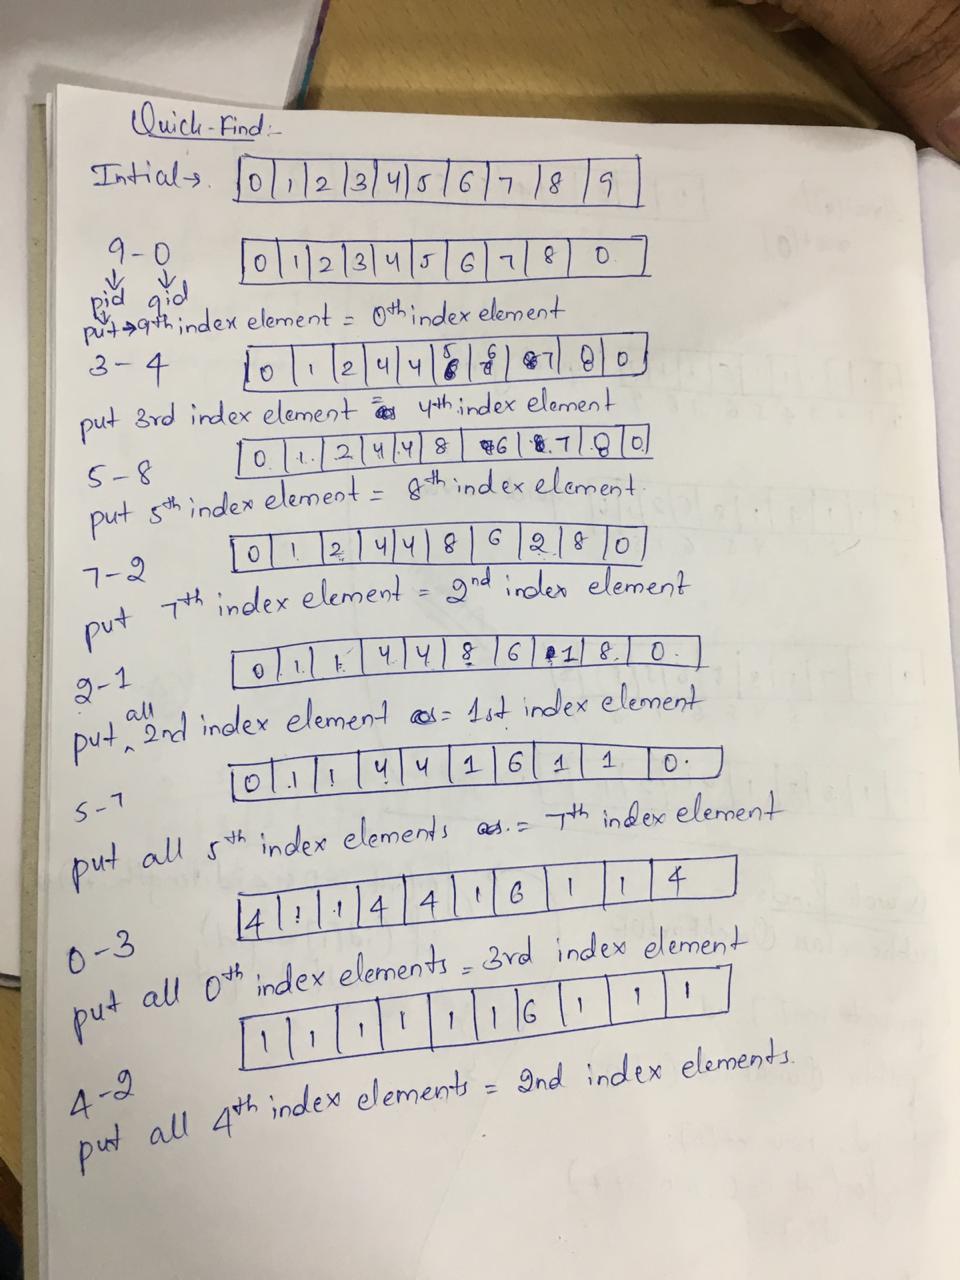 Quick-Find:-
Intial→. 0 1 2 3 4 5 6 7 8 9
9-0 0 1 2 3 4 5 6 7 8 0
pid qid
put→9th index element = 0th index element
3-4 0 1 2 4 4 5 6 7 8 0
put 3rd index element = 4th index element
5-8 0 1 2 4 4 8 6 7 8 0
put 5th index element = 8th index element.
7-2 0 1 2 4 4 8 6 2 8 0
put 7th index element = 2nd index element
2-1 0 1 1 4 4 8 6 1 8 0
put all 2nd index element = 1st index element
5-7 0 1 1 4 4 1 6 1 1 0
put all 5th index elements = 7th index element
0-3 4 1 1 4 4 1 6 1 1 4
put all 0th index elements = 3rd index element
4-2 1 1 1 1 1 1 6 1 1 1
put all 4th index elements = 2nd index elements.